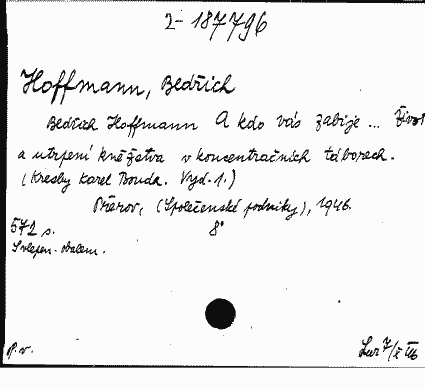 2-187796
Hoffmann, Bedřich
Bedřich Hoffmann A kdo vás zabije ... Život
a utrpení kněžstva v koncentračních táborech.
(Kresby Karel Bouda. Vyd. 1.)
Přerov, (Společenské podniky), 1946.
572 s. 8°
S vlepen. obalem.
P. v.